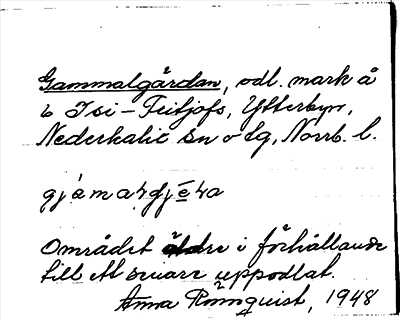 Gammalgårdan, odl. mark å
6 Isi-Feitjofs, Ytterbyn,
Nederkalix sn o tg, Norrb. l.
Området äldre i förhållande
till ett senare uppodlat.
Anna Rönnquist, 1948